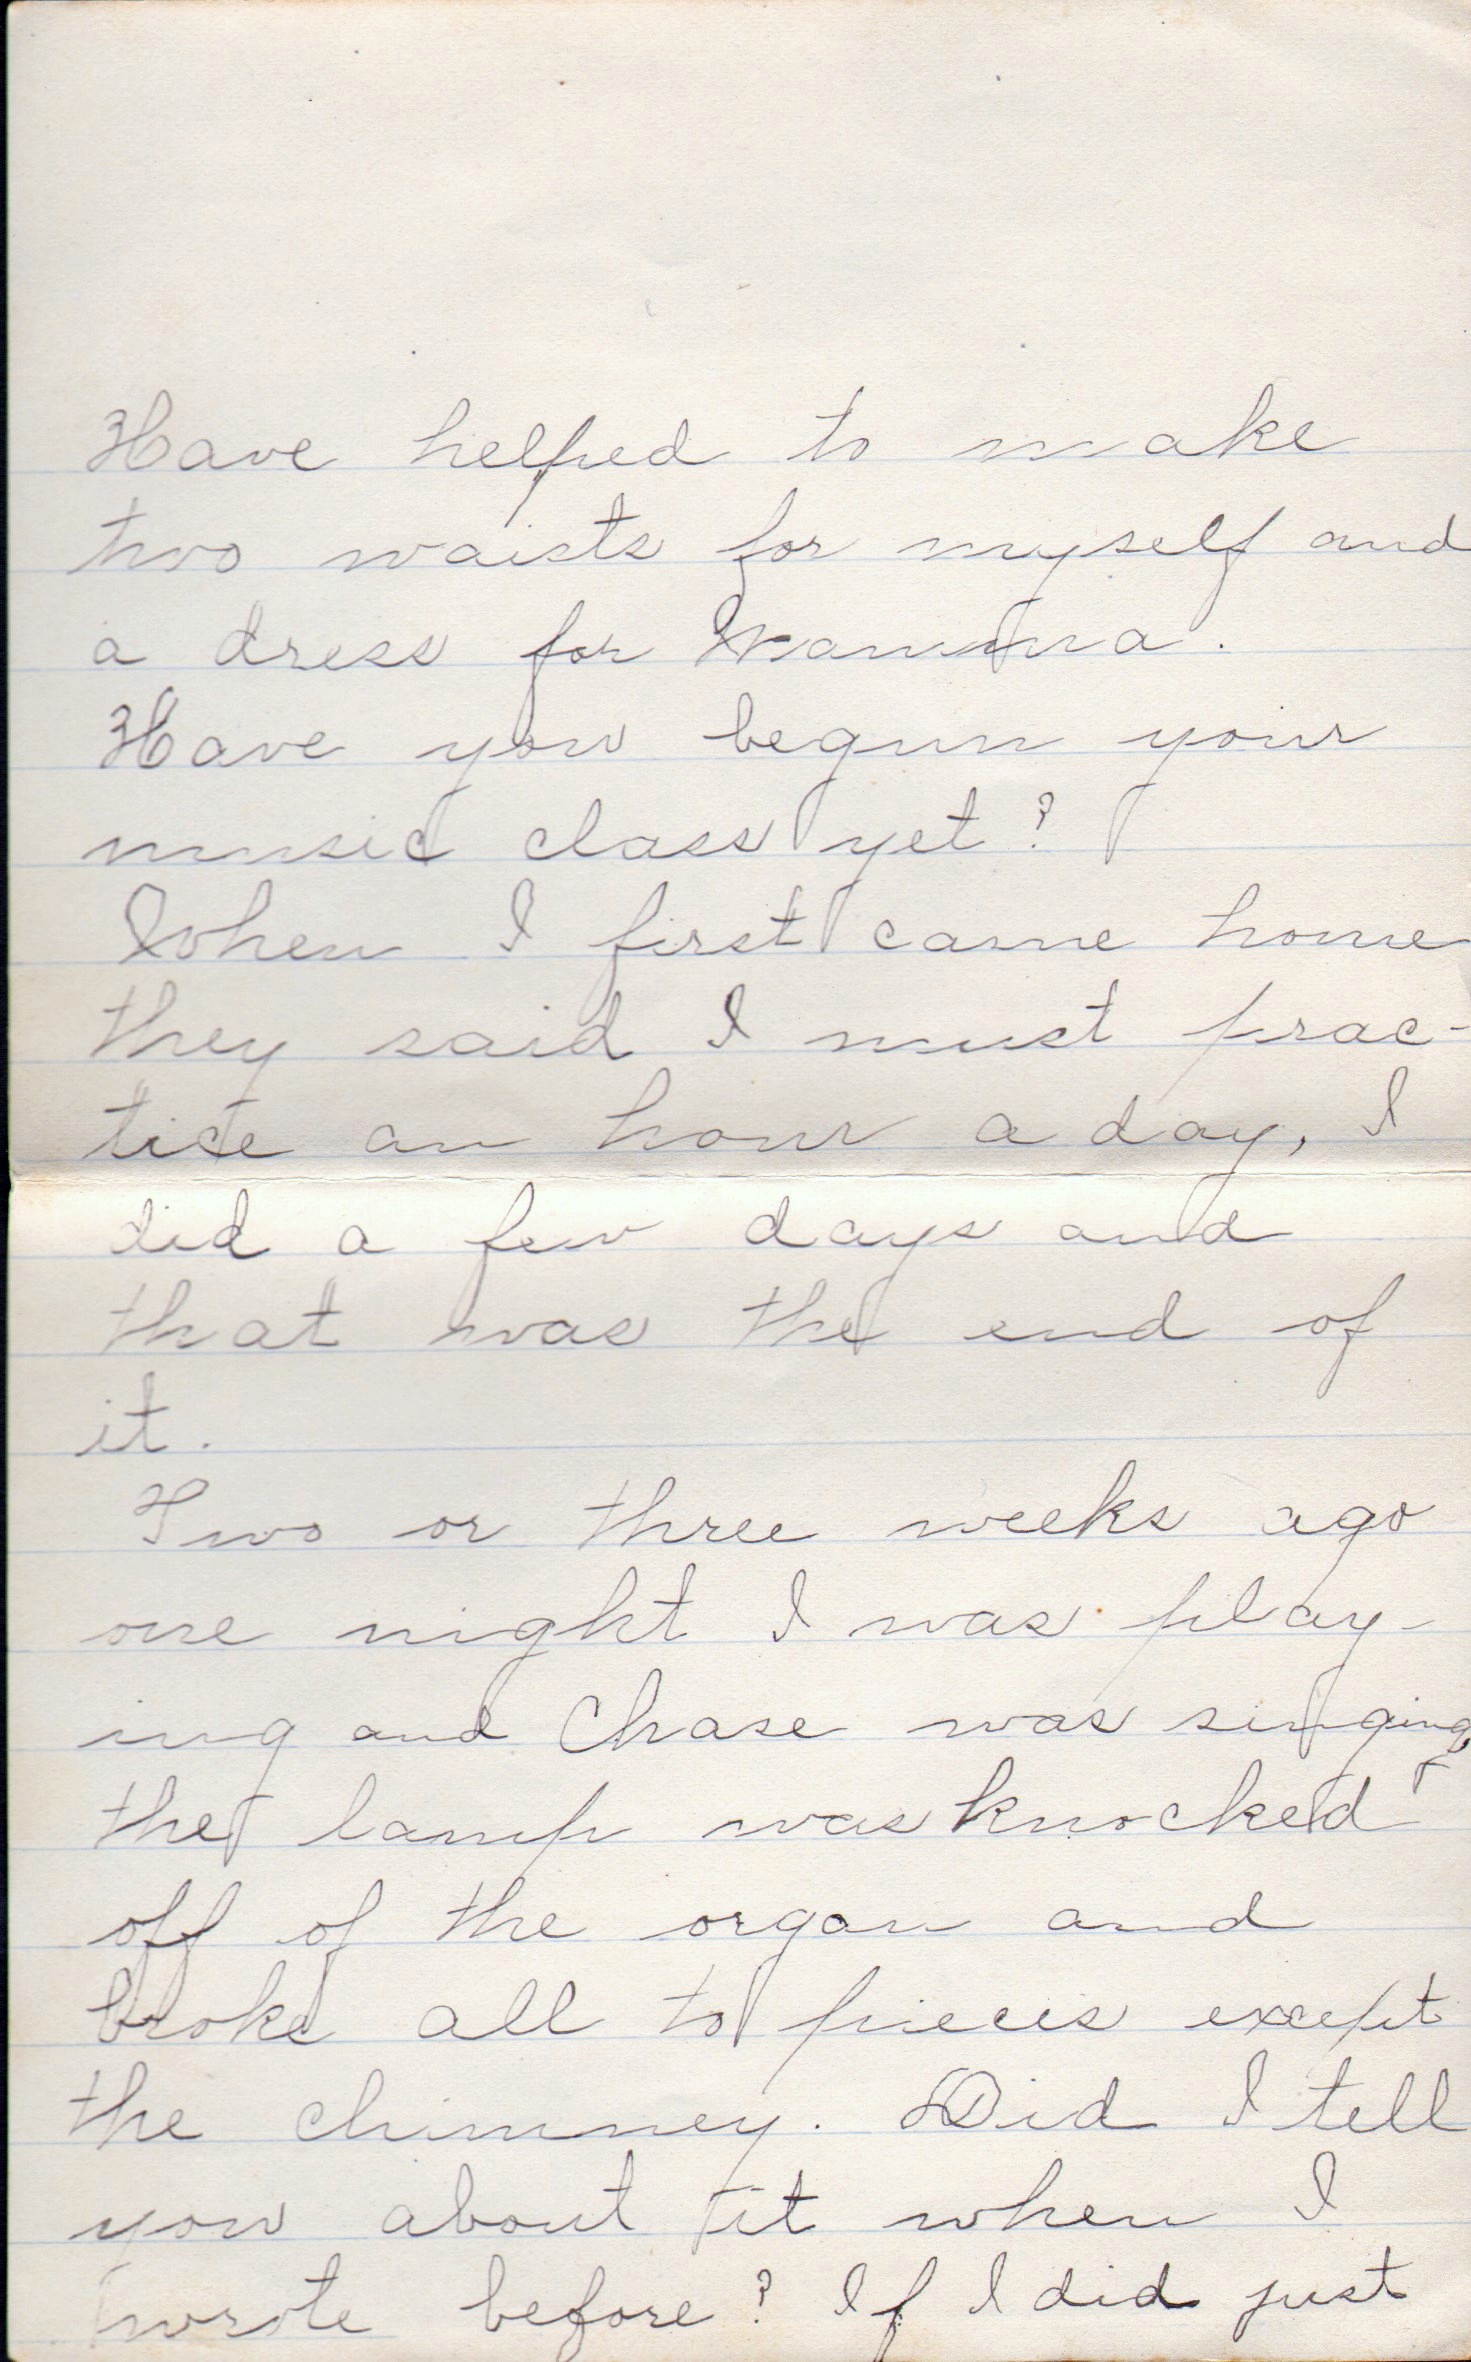 Have helped to make
two waists for myself and
a dress for Mamma.
Have you begun your
music class yet?
When I first came home
they said I must prac-
tice an hour a day, I
did a few days and
that was the end of
it.
Two or three weeks ago
one night I was play-
ing and Chase was singing,
the lamp was knocked
off of the organ and
broke all to pieces except
the chimney. Did I tell
you about it when I
wrote before? If I did just